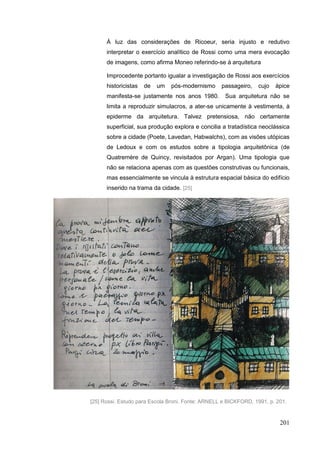 À luz das considerações de Ricoeur, seria injusto e redutivo
interpretar o exercício analítico de Rossi como uma mera evocação
de imagens, como afirma Moneo referindo-se à arquitetura
Improcedente portanto igualar a investigação de Rossi aos exercícios
historicistas de um pós-modernismo passageiro, cujo ápice
manifesta-se justamente nos anos 1980. Sua arquitetura não se
limita a reproduzir simulacros, a ater-se unicamente à vestimenta, à
epiderme da arquitetura. Talvez pretensiosa, não certamente
superficial, sua produção explora e concilia a tratadística neoclássica
sobre a cidade (Poete, Lavedan, Habwalchs), com as visões utópicas
de Ledoux e com os estudos sobre a tipologia arquitetônica (de
Quatremère de Quincy, revisitados por Argan). Uma tipologia que
não se relaciona apenas com as questões construtivas ou funcionais,
mas essencialmente se vincula à estrutura espacial básica do edifício
inserido na trama da cidade. [25]
La prova mi sembra
questa continuità
mestiere.
contano
relativamente o solo come
momenti della prova.
La prova è l'esercizio, anche
personale come la vita
giorno px giorno.
Come è giorno px
giorno - La
nel tempo, la vita
funzione del tempo -
progetto di villa
px libro Parigi.
Parigi circa 20 maggio -
La scuola di Broni
[25] Rossi. Estudo para Escola Broni. Fonte: ARNELL e BICKFORD, 1991, p. 201.
201